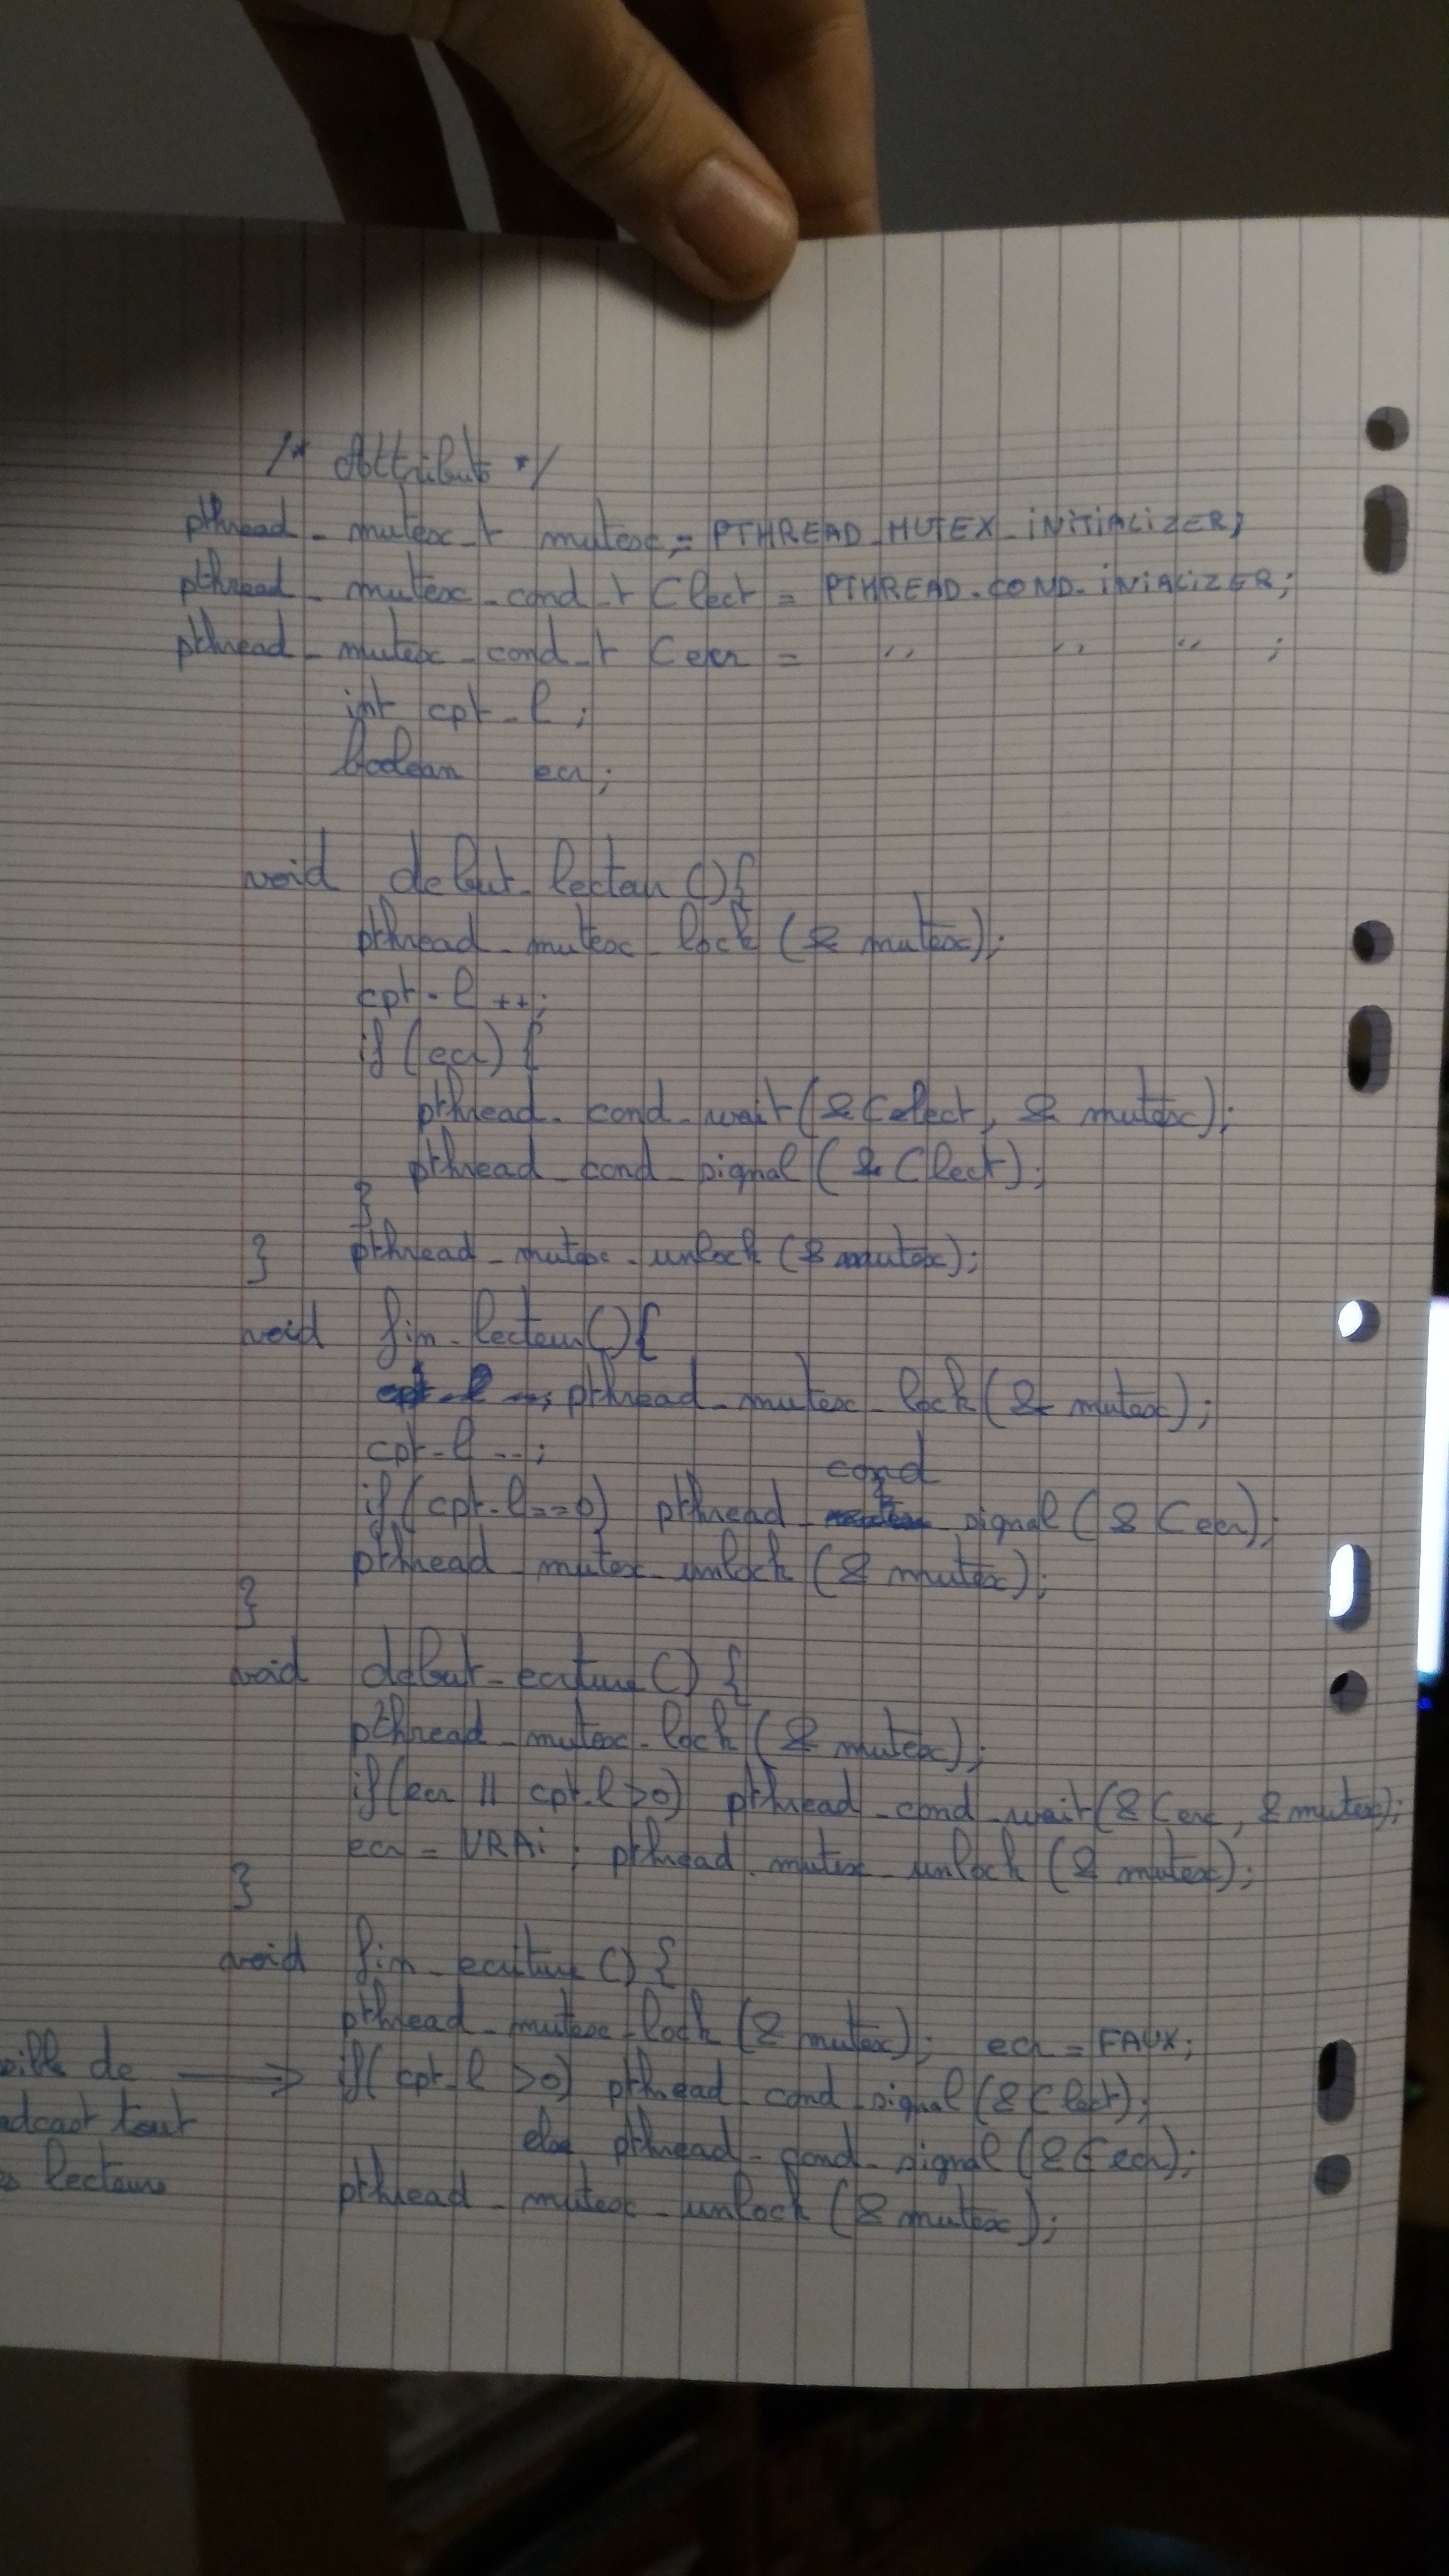 /* Attributs */
pthread_mutex_t mutex = PTHREAD_MUTEX_INITIALIZER;
pthread_mutex_cond_t Clect = PTHREAD_COND_INIALIZER;
pthread_mutex_cond_t Cecr = " " " ;
int cpt_l ;
boolean ecr;
void debut_lecteur (){
pthread_mutex_lock (& mutex);
cpt_l ++;
if (ecr) {
pthread_cond_wait (& Clect, & mutex);
pthread_cond_signal (& Clect);
}
pthread_mutex_unlock (& mutex);
}
void fin_lecteur(){
pthread_mutex_lock (& mutex);
cpt_l --;
if (cpt_l==0) pthread_cond_signal (& Cecr);
pthread_mutex_unlock (& mutex);
}
void debut_ecriture () {
pthread_mutex_lock (& mutex);
if (ecr || cpt_l >0) pthread_cond_wait (& Cecr, & mutex);
ecr = VRAI ; pthread_mutex_unlock (& mutex);
}
void fin_ecriture () {
pthread_mutex_lock (& mutex); ecr = FAUX;
de → if( cpt_l >0) pthread_cond_signal (& Clect);
tout else pthread_cond_signal (& Cecr);
lecteurs pthread_mutex_unlock (& mutex);